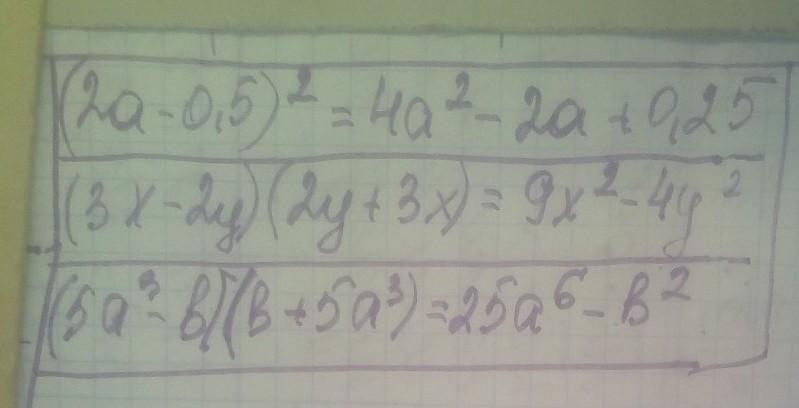 (2a-0,5)² = 4a² - 2a + 0,25
(3x-2y)(2y+3x) = 9x² - 4y²
(5a³-b)(b+5a³) = 25a⁶ - b²